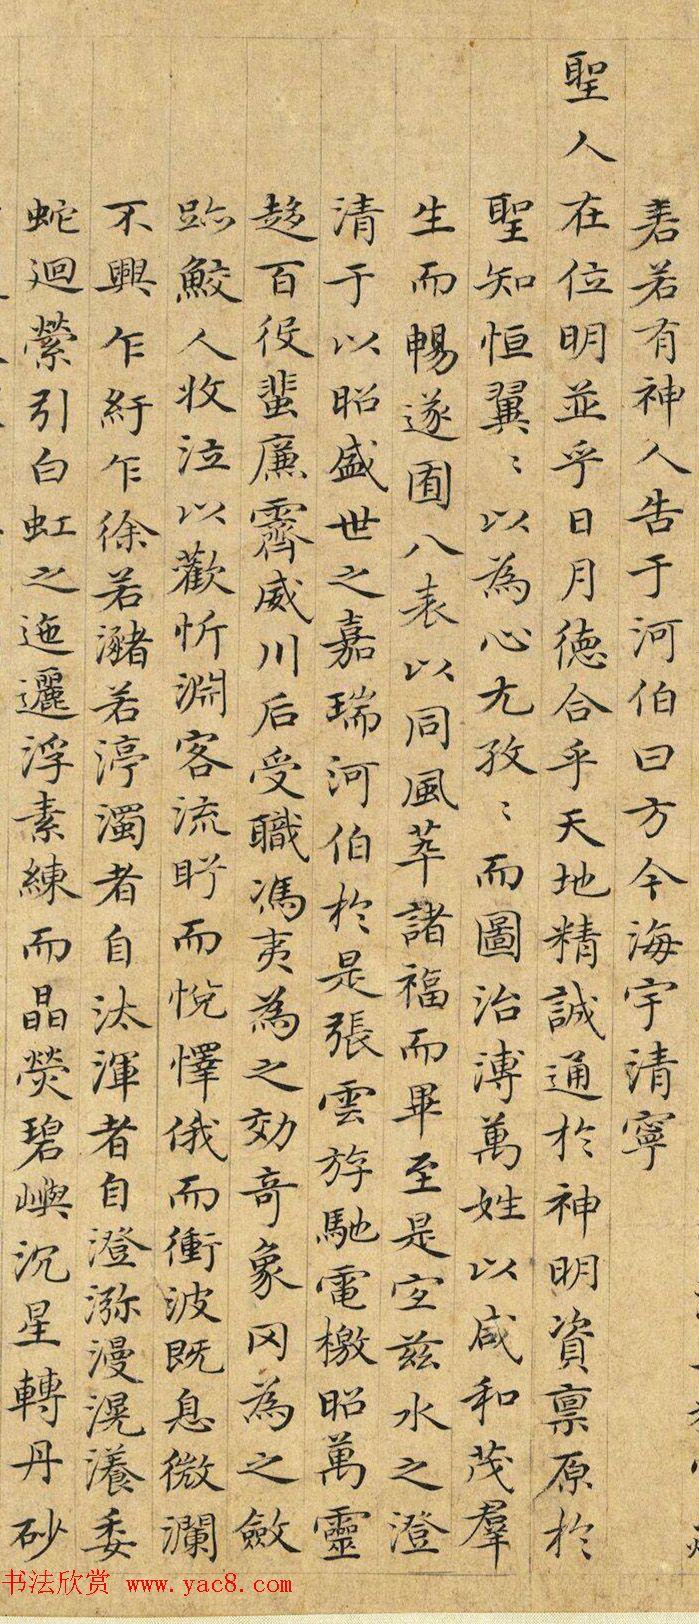 砉若有神人告于河伯曰方今海宇清寧
聖人在位明並乎日月德合乎天地精誠通於神明資禀原於
聖知恒翼〻以為心尤孜〻而圖治溥萬姓以咸和茂羣
生而暢遂囿八表以同風萃諸福而畢至是宜兹水之澄
清于以昭盛世之嘉瑞河伯於是張雲斿馳電檄昭萬靈
趍百役蜚廉霽威川后受職馮夷為之効奇象罔為之斂
跡鮫人收泣以歡忻淵客流眄而悅懌俄而衝波既息微瀾
不興乍紆乍徐若瀦若渟濁者自汰渾者自澄瀰漫滉瀁委
蛇迴縈引白虹之迤邐浮素練而晶熒碧嶼沉星轉丹砂
书法欣赏 www.yac8.com